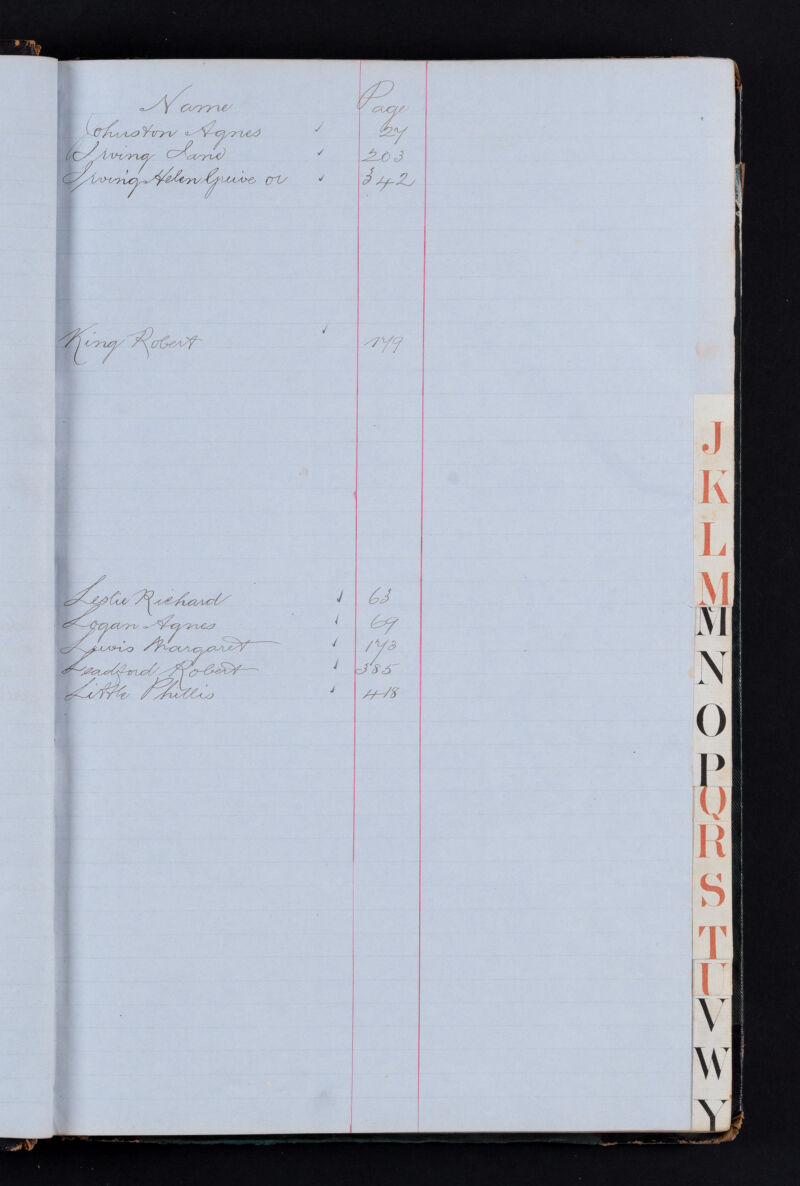 Name Page
Johnston Agnes 27
Irving Jane 203
Irving Helen Greive or 342
King Robert 179
Leslie Richard 63
Logan Agnes 69
Lewis Margaret 173
Leadford Robert 385
Little Phillis 418
J
K
L
M
M
N
O
P
Q
R
S
T
U
V
W
Y